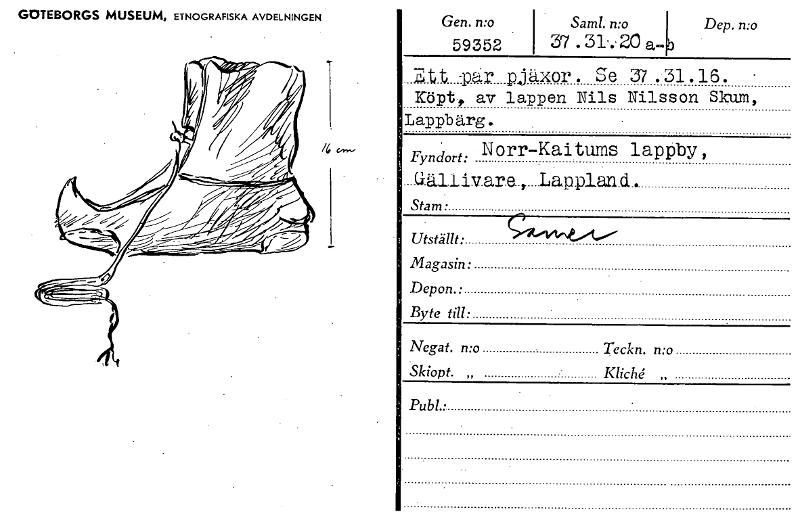 GÖTEBORGS MUSEUM, ETNOGRAFISKA AVDELNINGEN
16 cm
Gen. n:o Saml. n:o Dep. n:o
59352 37.31.20 a-b
Ett par pjäxor. Se 37.31.16.
Köpt, av lappen Nils Nilsson Skum,
Lappbärg.
Fyndort: Norr-Kaitums lappby,
Gällivare, Lappland.
Stam:
Samer
Utställt:
Magasin:
Depon.:
Byte till:
Negat. n:o Teckn. n:o
Skiopt. „ Kliché „
Publ.: